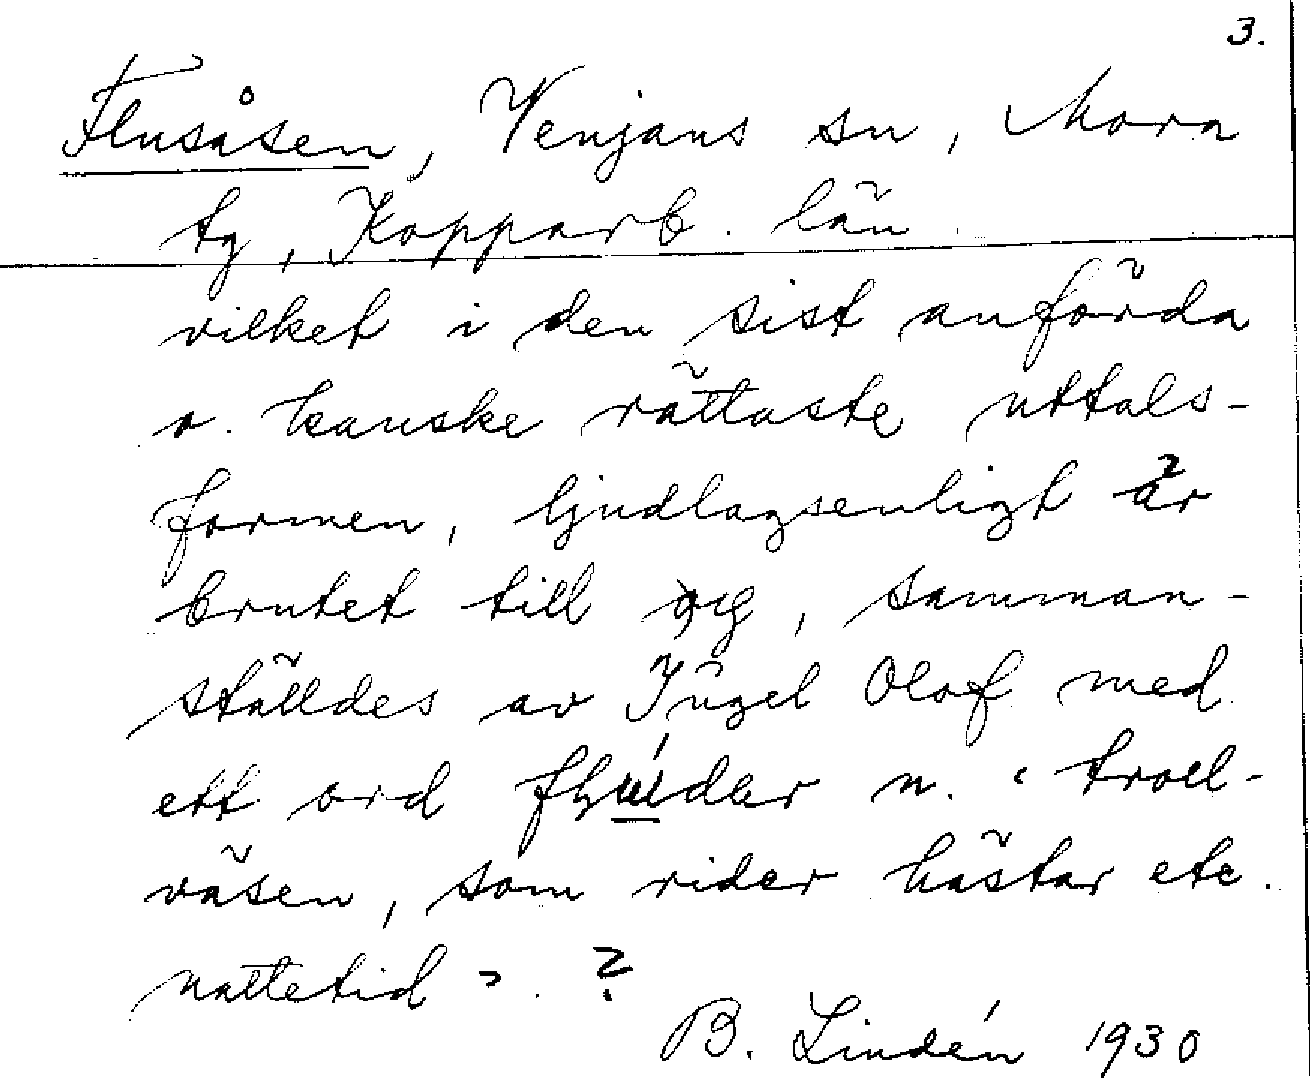 3.
Flusåsen, Venjans sn, Mora
tg, Kopparb. län.
vilket i den sist anförda
o. kanske rättaste uttals-
formen, ljudlagsenligt är
brutet till , samman-
ställdes av Ingel Olof med
ett ord n. ‘troll-
väsen, som rider hästar etc.
nattetid’. ?
B. Lindén 1930